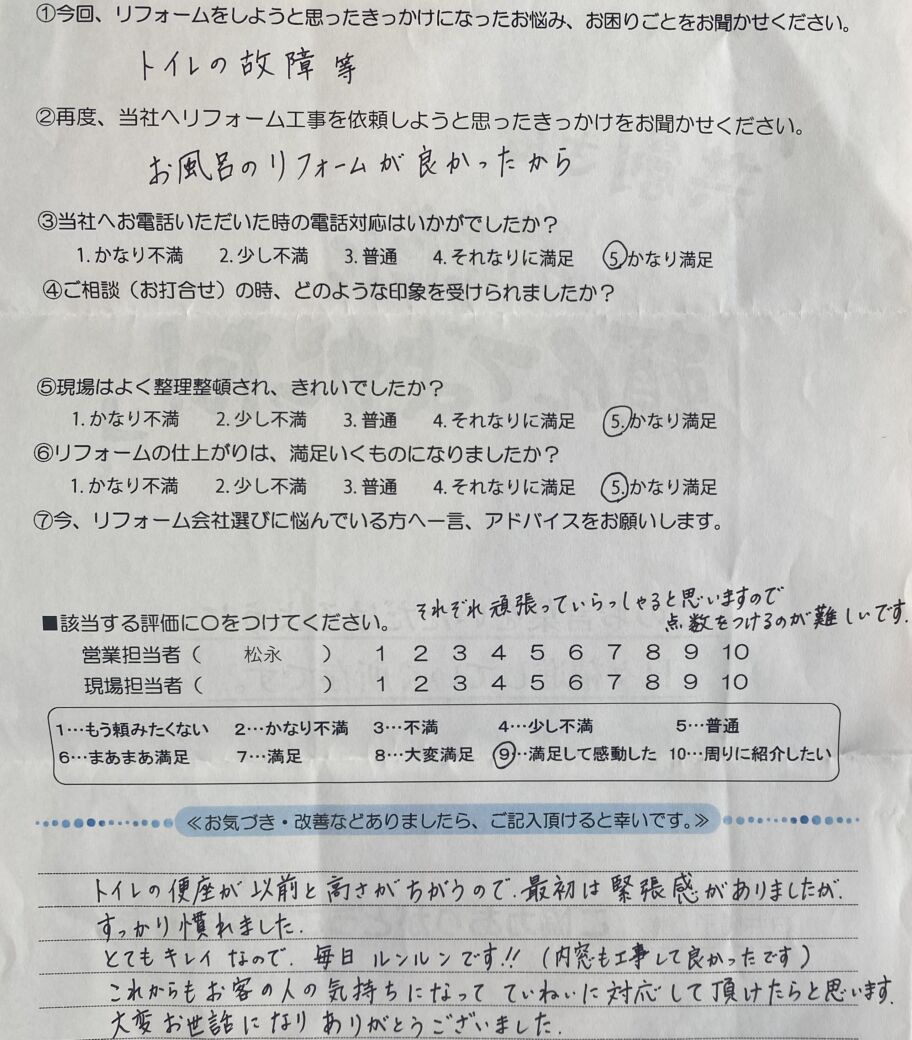 ①今回、リフォームをしようと思ったきっかけになったお悩み、お困りごとをお聞かせください。
トイレの故障等
②再度、当社へリフォーム工事を依頼しようと思ったきっかけをお聞かせください。
お風呂のリフォームが良かったから
③当社へお電話いただいた時の電話対応はいかがでしたか？
1.かなり不満 2.少し不満 3.普通 4.それなりに満足 5.かなり満足
④ご相談（お打合せ）の時、どのような印象を受けられましたか？
⑤現場はよく整理整頓され、きれいでしたか？
1.かなり不満 2.少し不満 3.普通 4.それなりに満足 5.かなり満足
⑥リフォームの仕上がりは、満足いくものになりましたか？
1.かなり不満 2.少し不満 3.普通 4.それなりに満足 5.かなり満足
⑦今、リフォーム会社選びに悩んでいる方へ一言、アドバイスをお願いします。
それぞれ頑張っていらっしゃると思いますので
点数をつけるのが難しいです.
■該当する評価に○をつけてください。
営業担当者（ 松永 ） 1 2 3 4 5 6 7 8 9 10
現場担当者（ ） 1 2 3 4 5 6 7 8 9 10
1…もう頼みたくない 2…かなり不満 3…不満 4…少し不満 5…普通
6…まあまあ満足 7…満足 8…大変満足 9…満足して感動した 10…周りに紹介したい
≪お気づき・改善などありましたら、ご記入頂けると幸いです。≫
トイレの便座が以前と高さがちがうので.最初は緊張感がありましたが.
すっかり慣れました.
とてもキレイなので.毎日ルンルンです!!（内窓も工事して良かったです）
これからもお客の人の気持ちになってていねいに対応して頂けたらと思います.
大変お世話になりありがとうございました.